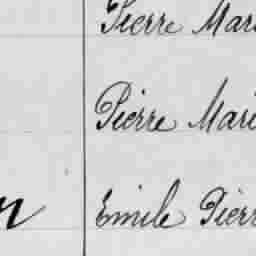 Pierre Mari
Pierre Mari
Emile Pierr